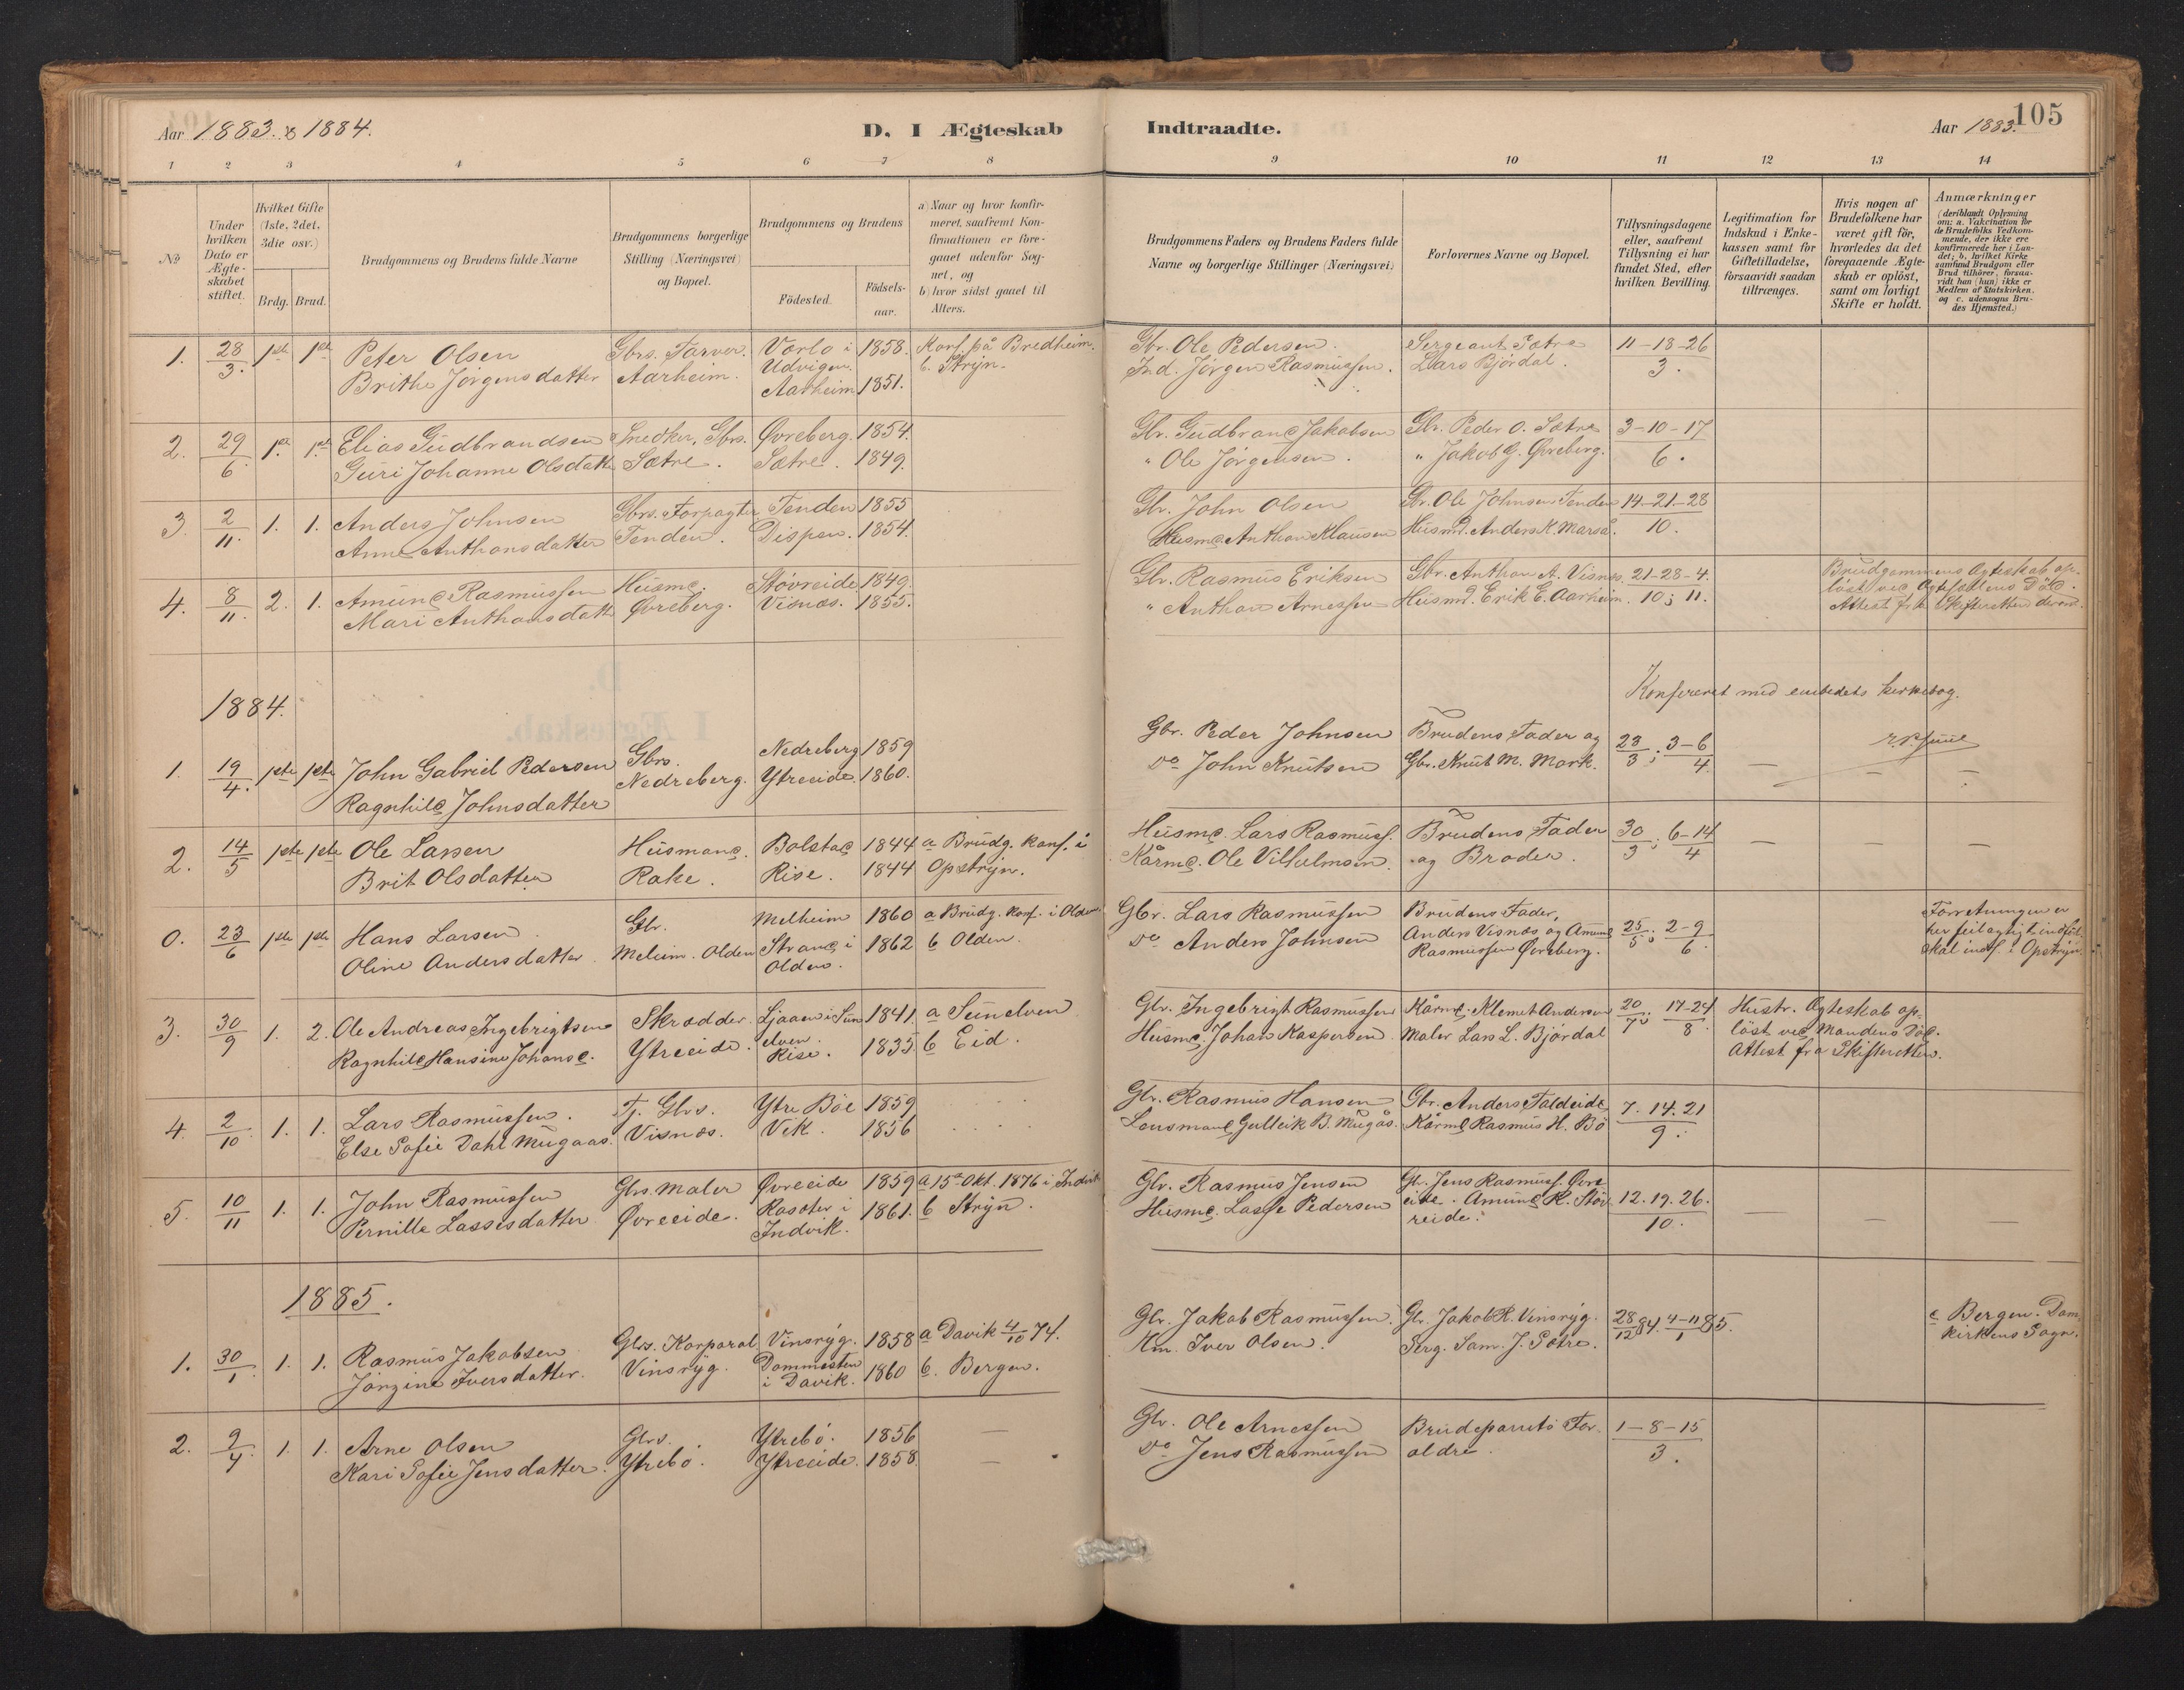 Aar 1883. & 1884.
D. I Ægteskab
Indtraadte.
Aar 1883.
105
1 2 3 4 5 6 7 8
9 10 11 12 13 14
No
Under hvilken Dato er Ægte-skabet stiftet.
Hvilket Gifte (1ste, 2det, 3die osv.)
Brdg. Brud.
Brudgommens og Brudens fulde Navne
Brudgommens borgerlige Stilling (Næringsvei) og Bopæl.
Brudgommens og Brudens
Födested.
Födsels-aar.
a) Naar og hvor konfir-meret, saafremt Kon-firmationen er fore-gaaet udenfor Sog-net, og
b) hvor sidst gaaet til Alters.
Brudgommens Faders og Brudens Faders fulde Navne og borgerlige Stillinger (Næringsvei)
Forlovernes Navne og Bopæl.
Tillysningsdagene eller, saafremt Tillysning ei har fundet Sted, efter hvilken Bevilling.
Legitimation for Indskud i Enke-kassen samt for Giftetilladelse, forsaavidt saadan tiltrænges.
Hvis nogen af Brudefolkene har været gift för, hvorledes da det foregaaende Ægte-skab er oplöst, samt om lovligt Skifte er holdt.
Anmærkninger
(deriblandt Oplysning om: a. Vakcination for de Brudefolks Vedkom-mende, der ikke ere konfirmerede her i Lan-det; b. hvilket Kirke samfund Brudgom eller Brud tilhörer, forsaa-vidt han (hun) ikke er Medlem af Statskirken, og c. udensogns Bru-des Hjemsted.)
1. 28/3. 1ste 1ste Peter Olsen Gbrs. Farver. Vorlo i 1858. Konf. på Bredheim. Gbr. Ole Pedersen. Sergeant Sætre 11-18-26
Brithe Jørgensdatter Aarheim. Udvigen. b. Strÿn. Ind. Jörgen Rasmussen. Lars Björdal. 3.
Aarheim 1851.
2. 29/6 1ste 1ste Elias Gudbrandsen Snedker, Gbrs. Øvreberg. 1854. Gbr. Gudbrand Jakobsen Gbr. Peder O. Sætre 3-10-17
Guri Johanne Olsdatt. Sætre. Sætre. 1849. " Ole Jörgensen. " Jakob G. Øvreberg. 6.
3. 2/11. 1. 1. Anders Johnsen Gbrs. Forpagter Tenden 1855 Gbr. John Olsen Gbr. Ole Johnsen Tenden 14-21-28
Anne Anthonsdatter Tenden. Dispen. 1854. Husmd. Anthon Klausen Husmd. Anders K. Marså. 10.
4. 8/11. 2. 1. Amund Rasmussen Husmd. Stövreide 1849. Gbr. Rasmus Eriksen Gbr. Anthon A. Visnes. 21-28-4. Brudgommens Ægteskab op-
Mari Anthonsdatt. Øvreberg. Visnæs. 1855. " Anthon Arnessen Husmd. Erik E. Aarheim. 10; 11. löst ved Ægtefællens Död.
Attest fra Skifteretten derom.
1884.
Konfereret med embedets kirkebog.
1. 19/4. 1ste 1ste John Gabriel Pedersen Gbrs. Nedreberg 1859 Gbr. Peder Johnsen Brudens Fader og 23/3; 3-6/4 — — —
Ragnhild Johnsdatter Nedreberg. Ytreeide. 1860. Do John Knutsen Gbr. Knut M. Mork.
2. 14/5 1ste 1ste Ole Larsen Husmand. Bolstad 1844 a Brudg. konf. i Husmd. Lars Rasmuss. Brudens Fader 30/3; 6-14/4 — — —
Brit Olsdatter Rake. Rise. 1844 Opstrÿn. Kårmd. Ole Vilhelmsen. og Broder.
0. 23/6 1ste 1ste Hans Larsen Gbr. Melheim 1860 a Brudg. konf. i Olden. Gbr. Lars Rasmussen Brudens Fader, 25/5; 2-9/6. Forretningen er
Oline Andersdatter. Meheim. Olden Strand i 1862 b Olden. Do Anders Johnsen Anders Visnæs og Amund her feilagtigt indfört
Olden. Rasmussen Øvreberg. skal indf. i Opstrÿn.
3. 30/9 1. 2. Ole Andreas Ingebrigtsen Skrædder. Ljaaen i Sun 1841. a Sunelven Gbr. Ingebrigt Rasmussen Kårmd. Klemet Andersen 20/7; 17-24/8. Hustr. Ægteskab op-
Ragnhild Hansine Johansd. Ytreeide. elven. b Eid. Husmd. Johan Kaspersen. Maler Lars L. Björdal löst ved Mandens Död.
Rise. 1835. Attest fra Skifteretten.
4. 2/10. 1. 1. Lars Rasmussen. Tj. Gbrs. Ytre Böe 1859 Gbr. Rasmus Hansen Gbr. Anders Faldeide 7. 14. 21
Else Sofie Dahl Mugaas. Visnæs. Vik. 1856 Lensmand Gulleik B. Mugås. Kårmd Rasmus H. Bö 9.
5. 10/11 1. 1. John Rasmussen Gbrs. Maler Øvreeide 1859 a 15de Okt. 1876 i Indvik Gbr. Rasmus Jensen Gbr. Jens Rasmuss. Øvre 12. 19. 26. — — —
Pernille Lassesdatter Øvreeide. Rasoter i 1861. b Strÿn. Husmd. Lasse Pedersen eide. Amund R. Stöv 10.
Indvik. reide.
1885.
1. 30/1 1. 1. Rasmus Jakobsen Gbrs. Korporal Vinsrÿg. 1858 a Davik 4/10 74. Gbr. Jakob Rasmussen. Gbr. Jakob R. Vinsrÿg. 28/12 84. 4-11/1 85. c Bergen. Dom
Jörgine Iversdatter. Vinsrÿg. Dommesten 1860 b. Bergen. Km. Iver Olsen. Serg. Sam. J. Sætre. kirkens Sogn.
i Davik.
2. 9/4. 1. 1. Arne Olsen Gbrs. Ytrebö. 1856 — Gbr. Ole Arnessen Brudeparrets For- 1-8-15
Kari Sofie Jensdatter. Ytrebö. Ytreeide. 1858. — Do Jens Rasmussen ældre. 3.